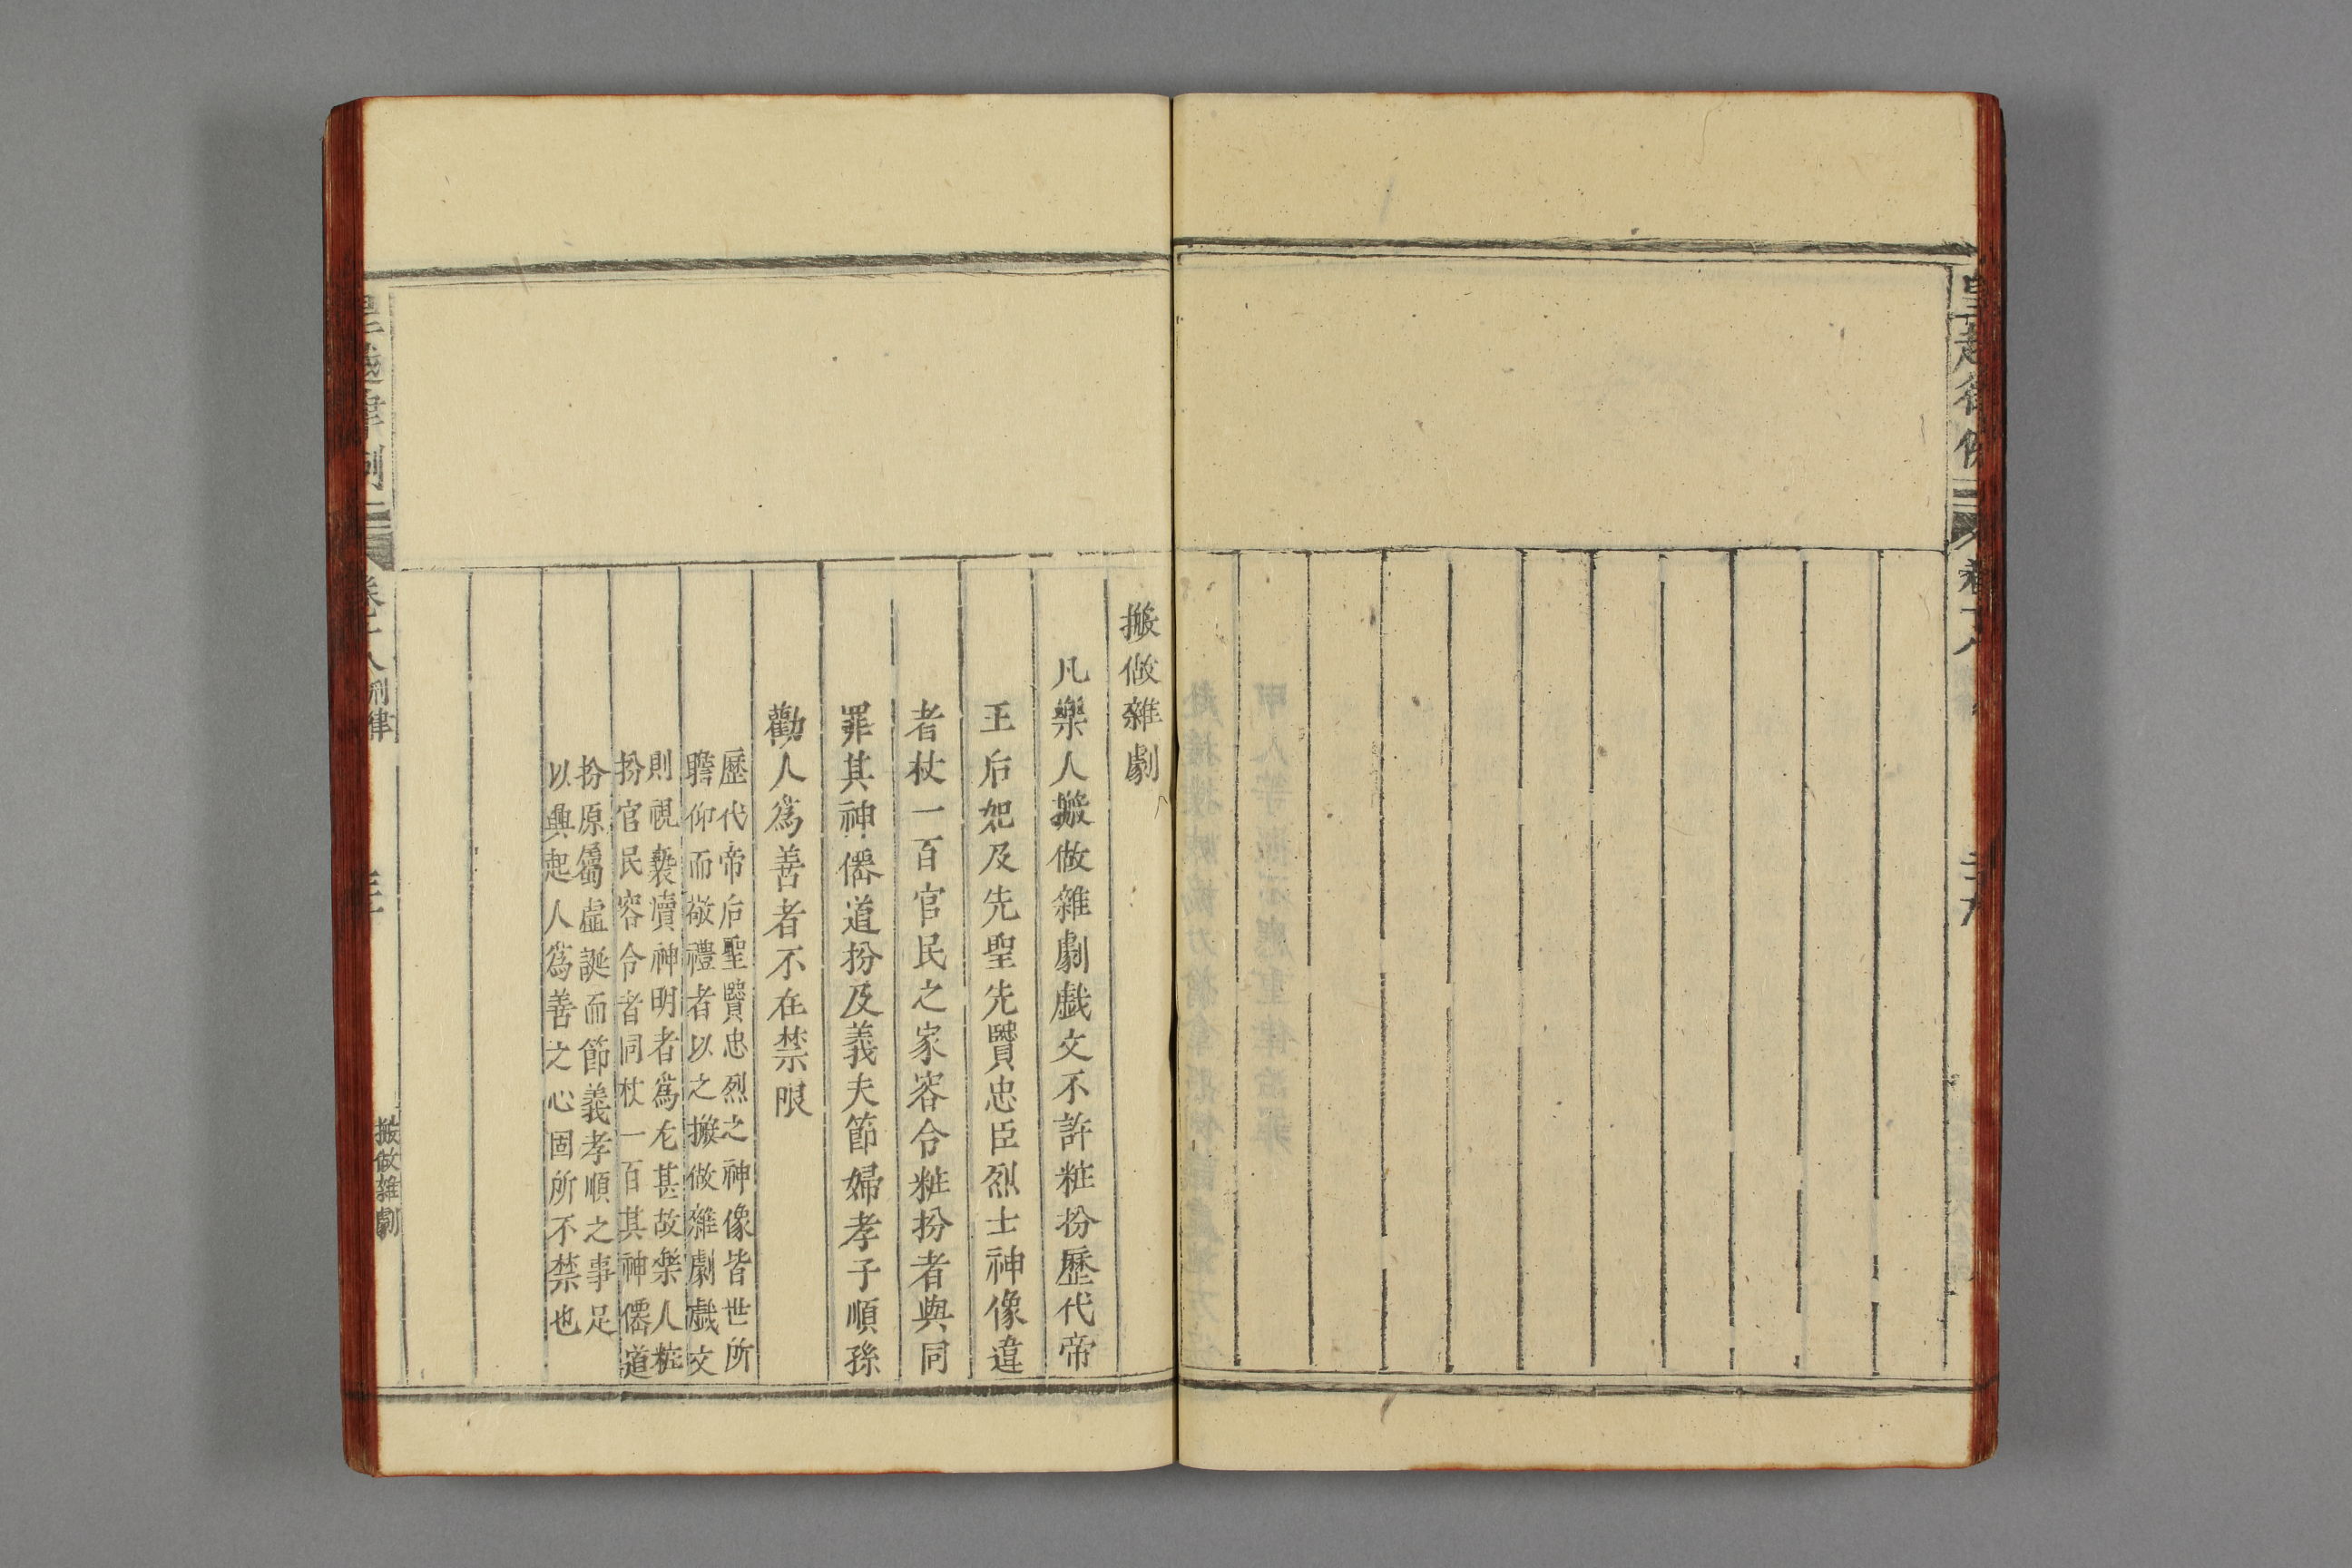 皇越律例
卷十八
搬做雜劇
凡樂人搬做雜劇戯文不許粧扮歷代帝
王后妃及先聖先賢忠臣烈士神像違
者杖一百官民之家容令粧扮者與同
罪其神僊道扮及義夫節婦孝子順孫
勸人爲善者不在禁限
歷代帝后聖賢忠烈之神像皆世所
瞻仰而敬禮者以之搬做雜劇戯文
則視褻瀆神明者爲尤甚故樂人粧
扮官民容令者同杖一百其神僊道
扮原屬虛誕而節義孝順之事足
以興起人爲善之心固所不禁也
皇越律例
卷十八
刑律
搬做雜劇